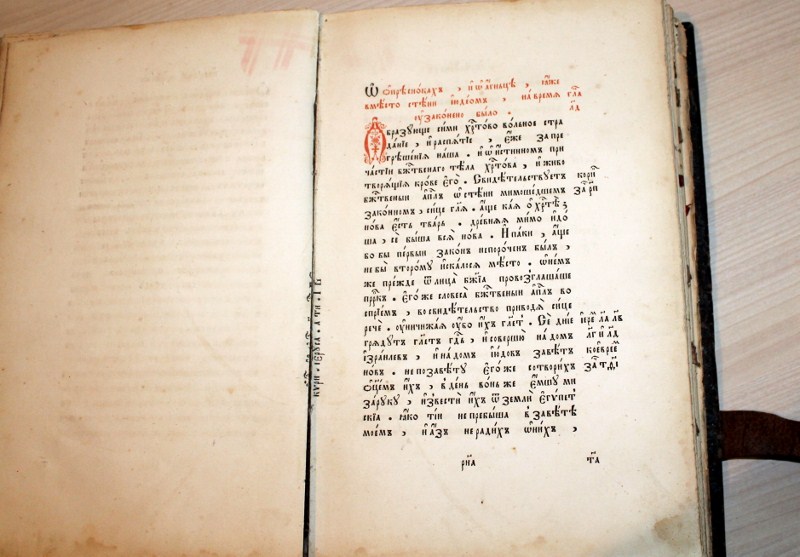 Ѿ ѻ҆прѣснокахъ , и҆ ѡ҆ а҆гнцѣ , ꙗ҆же
вмѣсто стѣни і҆ꙋдеѡмъ , на время гла́
ᲂу҆законено было .
Образꙋюще сими хрⷭ҇тово вольное стра
данїе , и҆ распѧтїе , є҆же за пре
грѣшенїѧ наша . и҆ ѡ҆ истинномъ при
частїи бжⷭ҇твенаго тѣла хрⷭ҇това , и҆ живо
творящїѧ крове є҆го̀ . Свидѣтельствꙋетъ
бжⷭ҇твеный а҆пⷭ҇лъ ѡ҆ стѣни мимошедшемъ
законномъ , сице гл҃ѧ . а҆ще каѧ ѻ҆ хрⷭ҇тѣ
нова є҆сть тварь . древнѧѧ мимо и҆до
ша , сѐ быша всѧ̀ нова . И҆ паки , а҆ще
бо бы первыи законъ непороченъ былъ ,
не бы̀ второмꙋ искалосѧ мѣсто . ѡ҆ немъ
же прежде ѿ лица̀ бж҃їѧ провозглашаше
прⷪ҇ркъ . є҆го же словеса̀ бжⷭ҇твеныи а҆пⷭ҇лъ ко
євреѡмъ , во свидѣтельство приводѧ̀ сице
речѐ . ᲂу҆ничижаѧ ᲂу҆бо и҆хъ гл҃етъ . Сѐ дн҃їе
грѧдꙋтъ гл҃етъ гдⷭ҇ь , и҆ совершꙋ̀ на домъ
і҆зраилевъ , и҆ на домъ і҆ю́довъ завѣтъ
новъ . не по завѣтꙋ є҆го же сотворихъ
ѻ҆ц҃емъ и҆хъ , в день во́нь же є҆мшꙋ ми
за рꙋкꙋ , и҆звести и҆хъ ѿ земли є҆гѵпет
скїѧ . ꙗ҆ко тїи не пребыша в завѣтѣ
моемъ , и҆ а҆зъ нерадихъ ѡ҆ нихъ ,